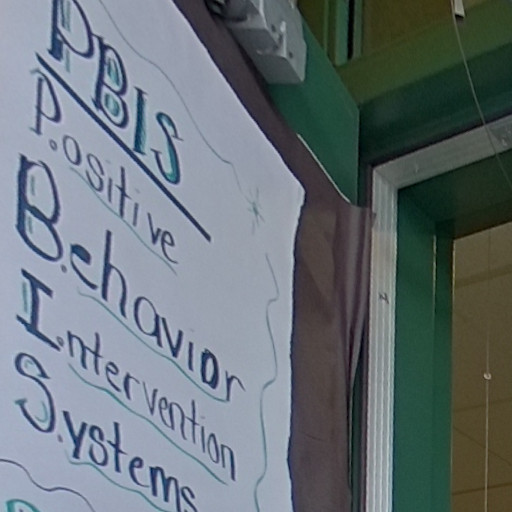 PBIS
P.ositive
B.ehavior
I.ntervention
S.ystems